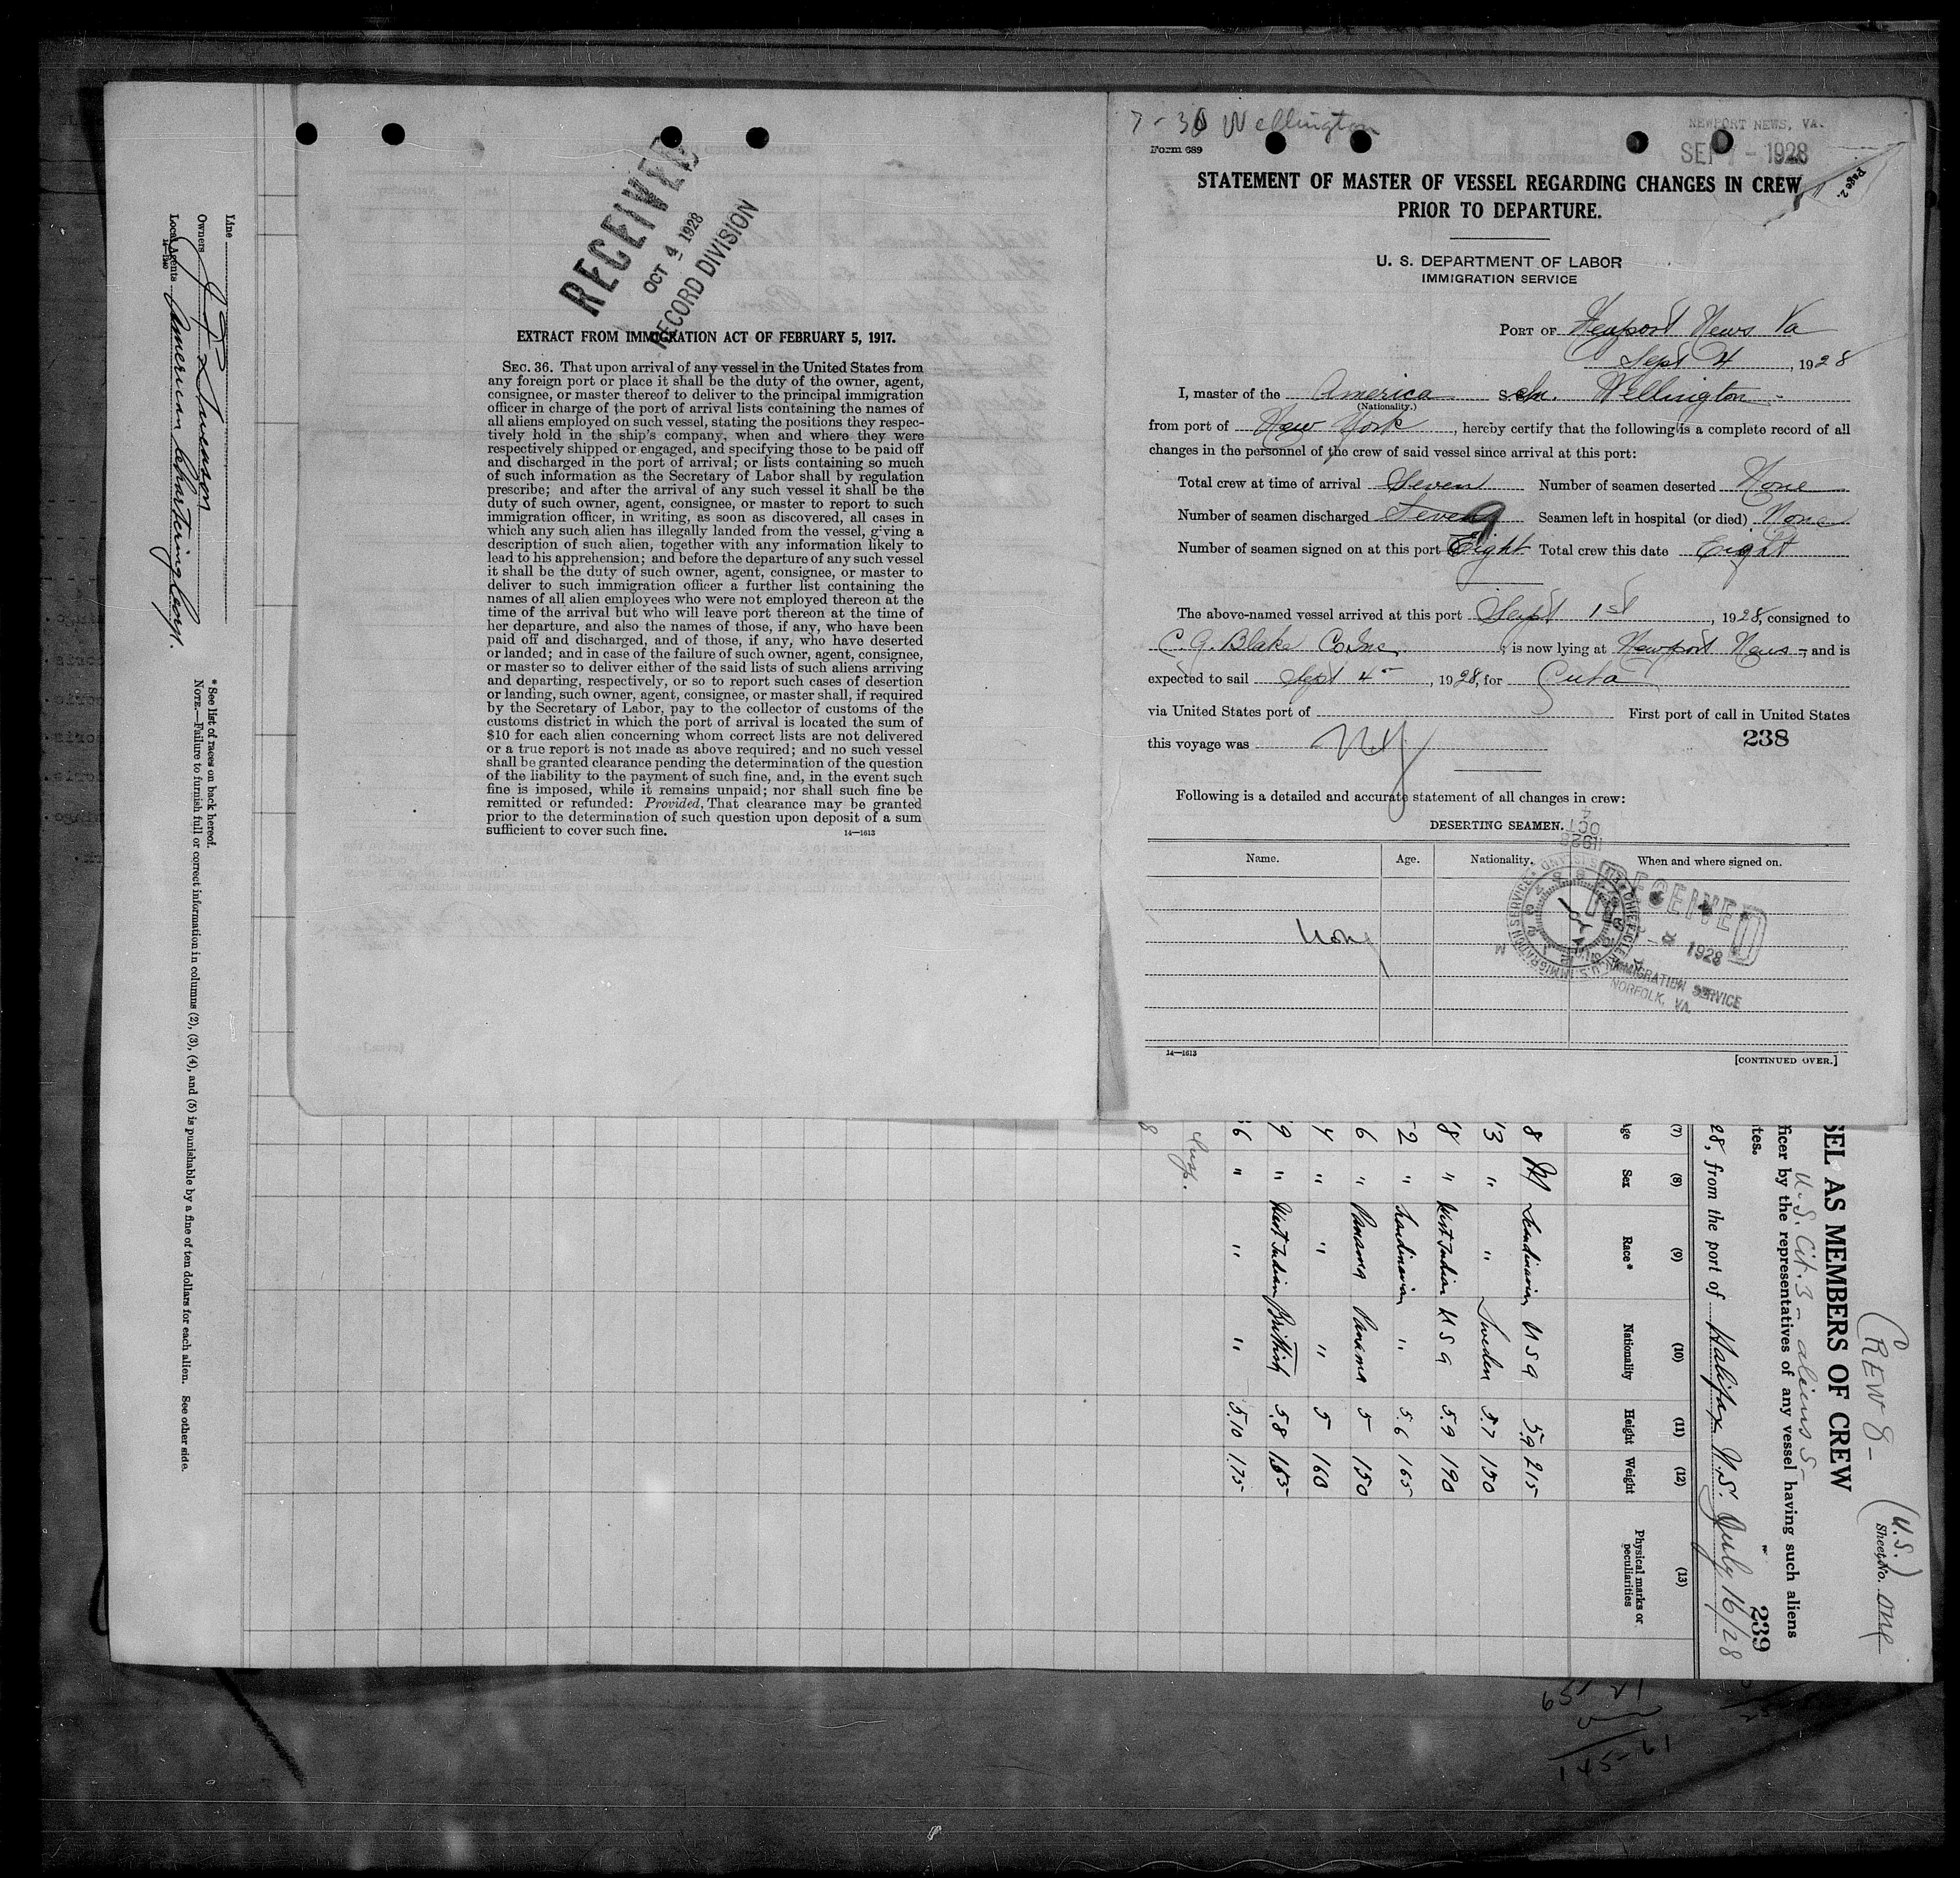 Line
Owners J P Swenson
Local Agents American Chartering Corp.
14—1240
* See list of races on back hereof.
NOTE.—Failure to furnish full or correct information in columns (2), (3), (4), and (5) is punishable by a fine of ten dollars for each alien. See other side.
RECEIVED
OCT 4 1928
RECORD DIVISION
EXTRACT FROM IMMIGRATION ACT OF FEBRUARY 5, 1917.
SEC. 36. That upon arrival of any vessel in the United States from
any foreign port or place it shall be the duty of the owner, agent,
consignee, or master thereof to deliver to the principal immigration
officer in charge of the port of arrival lists containing the names of
all aliens employed on such vessel, stating the positions they respec-
tively hold in the ship's company, when and where they were
respectively shipped or engaged, and specifying those to be paid off
and discharged in the port of arrival; or lists containing so much
of such information as the Secretary of Labor shall by regulation
prescribe; and after the arrival of any such vessel it shall be the
duty of such owner, agent, consignee, or master to report to such
immigration officer, in writing, as soon as discovered, all cases in
which any such alien has illegally landed from the vessel, giving a
description of such alien, together with any information likely to
lead to his apprehension; and before the departure of any such vessel
it shall be the duty of such owner, agent, consignee, or master to
deliver to such immigration officer a further list containing the
names of all alien employees who were not employed thereon at the
time of the arrival but who will leave port thereon at the time of
her departure, and also the names of those, if any, who have been
paid off and discharged, and of those, if any, who have deserted
or landed; and in case of the failure of such owner, agent, consignee,
or master so to deliver either of the said lists of such aliens arriving
and departing, respectively, or so to report such cases of desertion
or landing, such owner, agent, consignee, or master shall, if required
by the Secretary of Labor, pay to the collector of customs of the
customs district in which the port of arrival is located the sum of
$10 for each alien concerning whom correct lists are not delivered
or a true report is not made as above required; and no such vessel
shall be granted clearance pending the determination of the question
of the liability to the payment of such fine, and, in the event such
fine is imposed, while it remains unpaid; nor shall such fine be
remitted or refunded: Provided, That clearance may be granted
prior to the determination of such question upon deposit of a sum
sufficient to cover such fine.
14—1613
7-30 Wellington
Form 689
NEWPORT NEWS, VA.
SEP - 1928
Page 2.
STATEMENT OF MASTER OF VESSEL REGARDING CHANGES IN CREW
PRIOR TO DEPARTURE.
U. S. DEPARTMENT OF LABOR
IMMIGRATION SERVICE
PORT OF Newport News Va
Sept 4, 1928
I, master of the America Sch. Wellington
(Nationality.)
from port of New York, hereby certify that the following is a complete record of all
changes in the personnel of the crew of said vessel since arrival at this port:
Total crew at time of arrival Seven Number of seamen deserted None
Number of seamen discharged Seven Seamen left in hospital (or died) None
Number of seamen signed on at this port Eight Total crew this date Eight
The above-named vessel arrived at this port Sept 1st, 1928, consigned to
C. G. Blake Co Inc; is now lying at Newport News, and is
expected to sail Sept 4, 1928, for Cuba
via United States port of First port of call in United States
this voyage was N.Y 238
Following is a detailed and accurate statement of all changes in crew:
DESERTING SEAMEN.
OCT 4 1928
Name. Age. Nationality. When and where signed on.
None
RECEIVED
1928
IMMIGRATION SERVICE
NORFOLK, VA.
14—1613
[CONTINUED OVER.]
(U.S.)
Sheet No. One
CREW 8-
SEL AS MEMBERS OF CREW
U.S. Cit. 3 - aliens 5
ficer by the representatives of any vessel having such aliens
tes.
239
28, from the port of Halifax N.S. July 16/28
(7) (8) (9) (10) (11) (12) (13)
Age Sex Race* Nationality Height Weight Physical marks or peculiarities
8 M Scandinavian U S A 5.9 215
3 " " Sweden 5.7 150
8 " West Indian U S A 5.9 190
2 " Scandinavian " 5.6 165
6 " Panama Panama 5 150
4 " " " 5 160
9 " West Indian British 5.8 165
6 " " " 5.10 175
Insp.
8